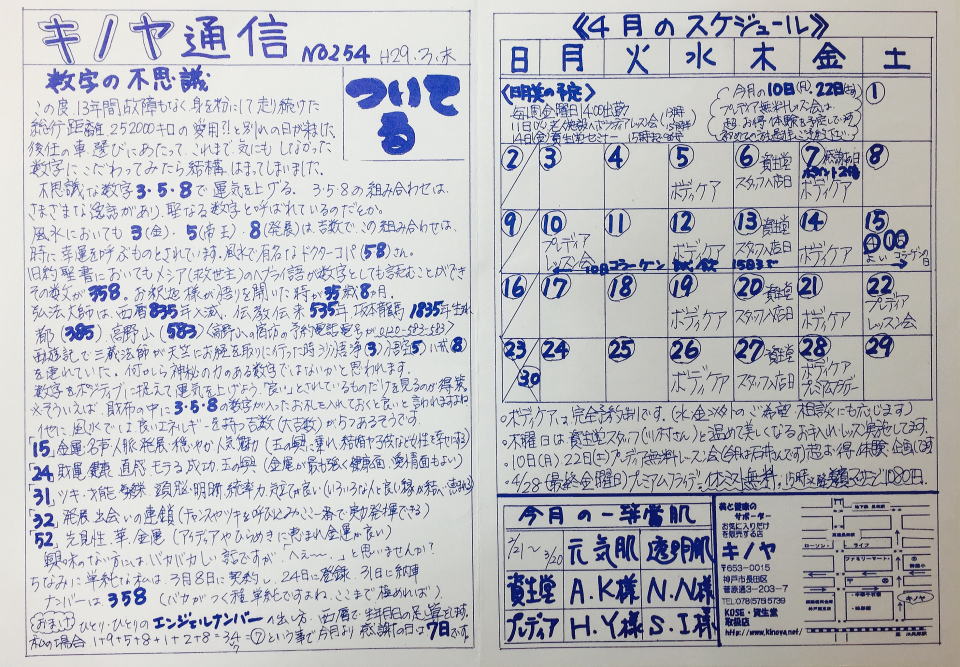 キノヤ通信 NO254 H29.3.末
数字の不思議
ついてる
この度 13年間故障もなく身を粉にして走り続けた
総行距離 252000キロの愛用?!と別れの日が来ました
後任の車選びにあたって、これまで気にもしなかった
数字にこだわってみたら結構はまってしまいました。
不思議な数字3・5・8で運気を上げる。 3・5・8の組み合わせは、
さまざまな逸話があり、聖なる数字と呼ばれているのだとか。
風水においても 3(金)・5(帝王) 8(発展)は吉数で、この組み合わせは、
時に幸運を呼ぶものとされています。風水で有名なドクターコパ(58)さん。
旧約聖書においてもメシア(救世主)のヘブライ語が数字としても読むことができ
その数が358。お釈迦様が悟りを開いた時が35歳8ヶ月。
弘法大師は、西暦835年入滅、仏教伝来535年 坂本龍馬1835年生まれ
都(385) 高野山(583)〈高野山の宿坊の予約電話番号が0120-583-583〉
西遊記で三蔵法師が天竺でお経を取りに行った時 沙悟浄(3)悟空(5)八戒(8)
を連れていた。何かしら神秘の力のある数字ではないかと思われます。
数字をポジティブに捉えて運気を上げよう「良い」とされているものだけを見るのが得策。
※そういえば、財布の中に3・5・8の数字が入ったお札を入れておくと良いと言われますよね
他に風水では良いエネルギーを持つ吉数(大吉数)が5つあるそうです。
「15」金運、名声、人脈、発展・穏やか
「24」財運、健康、直感、モテる、成功、玉の輿 (金運が最も強く健康面、愛情面もよい)
「31」ツキ・才能、頭脳・明晰、統率力
「32」発展、出会いの連鎖 (チャンスやツキを呼びこみここ一番で実力発揮できる)
「52」先見性、華、金運 (アイデアやひらめきに恵まれ金運が良い)
興味のない方には、バカバカしい話ですが、「へぇ〜〜。」と思いませんか?
ちなみに単純な私は、3月8日に契約し、24日に登録、31日に納車
ナンバーは、358 (バカがつく程単純ですよね、ここまで極めれば)
(おまけ) ひとり・ひとりのエンジェルナンバーの出し方。西暦で生年月日の足し算です。
私の場合 1+9+5+8+1+2+8=34 → ⑦ という事で今月より感謝の日は7日です。
《4月のスケジュール》
日 月 火 水 木 金 土
〈明美の予定〉
毎週金曜日 14:00出勤
今月の10日(月) 22日(土)
プレディア無料レッスン会は
超お得体験を予定してます
1
2 3 4 5 6 7 8
ボディケア
資生堂
スタッフ入店日
感謝の日
ポイント2倍
ボディケア
9 10 11 12 13 14 15
プレディア
レッスン会
ボディケア
資生堂
スタッフ入店日
ボディケア
よい
コラーゲンの日
10日コラーゲン 15日まで
16 17 18 19 20 21 22
ボディケア
資生堂
スタッフ入店日
ボディケア
プレディア
レッスン会
23 30 24 25 26 27 28 29
ボディケア
資生堂
スタッフ入店日
ボディケア
プレミアムフライデー
○ボディケアは完全予約制です。(水、金以外のご希望、相談にも応じます)
○木曜日は資生堂スタッフ(川村さん)と温めて美しくなるお手入れレッスン実施してます。
○10日(月) 22日(土)プレディア無料レッスン会(今月は石けんです)超お得体験企画してます
○4/28 (最終金曜日)プレミアムフライデー
今月の一華賞肌
2/21〜3/20 元気肌 透明肌
資生堂 A.K様 N.N様
プレディア H.Y様 S.I様
美と健康の
サポーター
お気に入りだけ
を販売する店
キノヤ
〒653-0015
神戸市長田区
菅原通3-203-7
TEL078(575)5739
KOSE・資生堂
取扱店
http://www.kinoya.net/
ローソン
ライフ
ファミリーマート
キノヤ